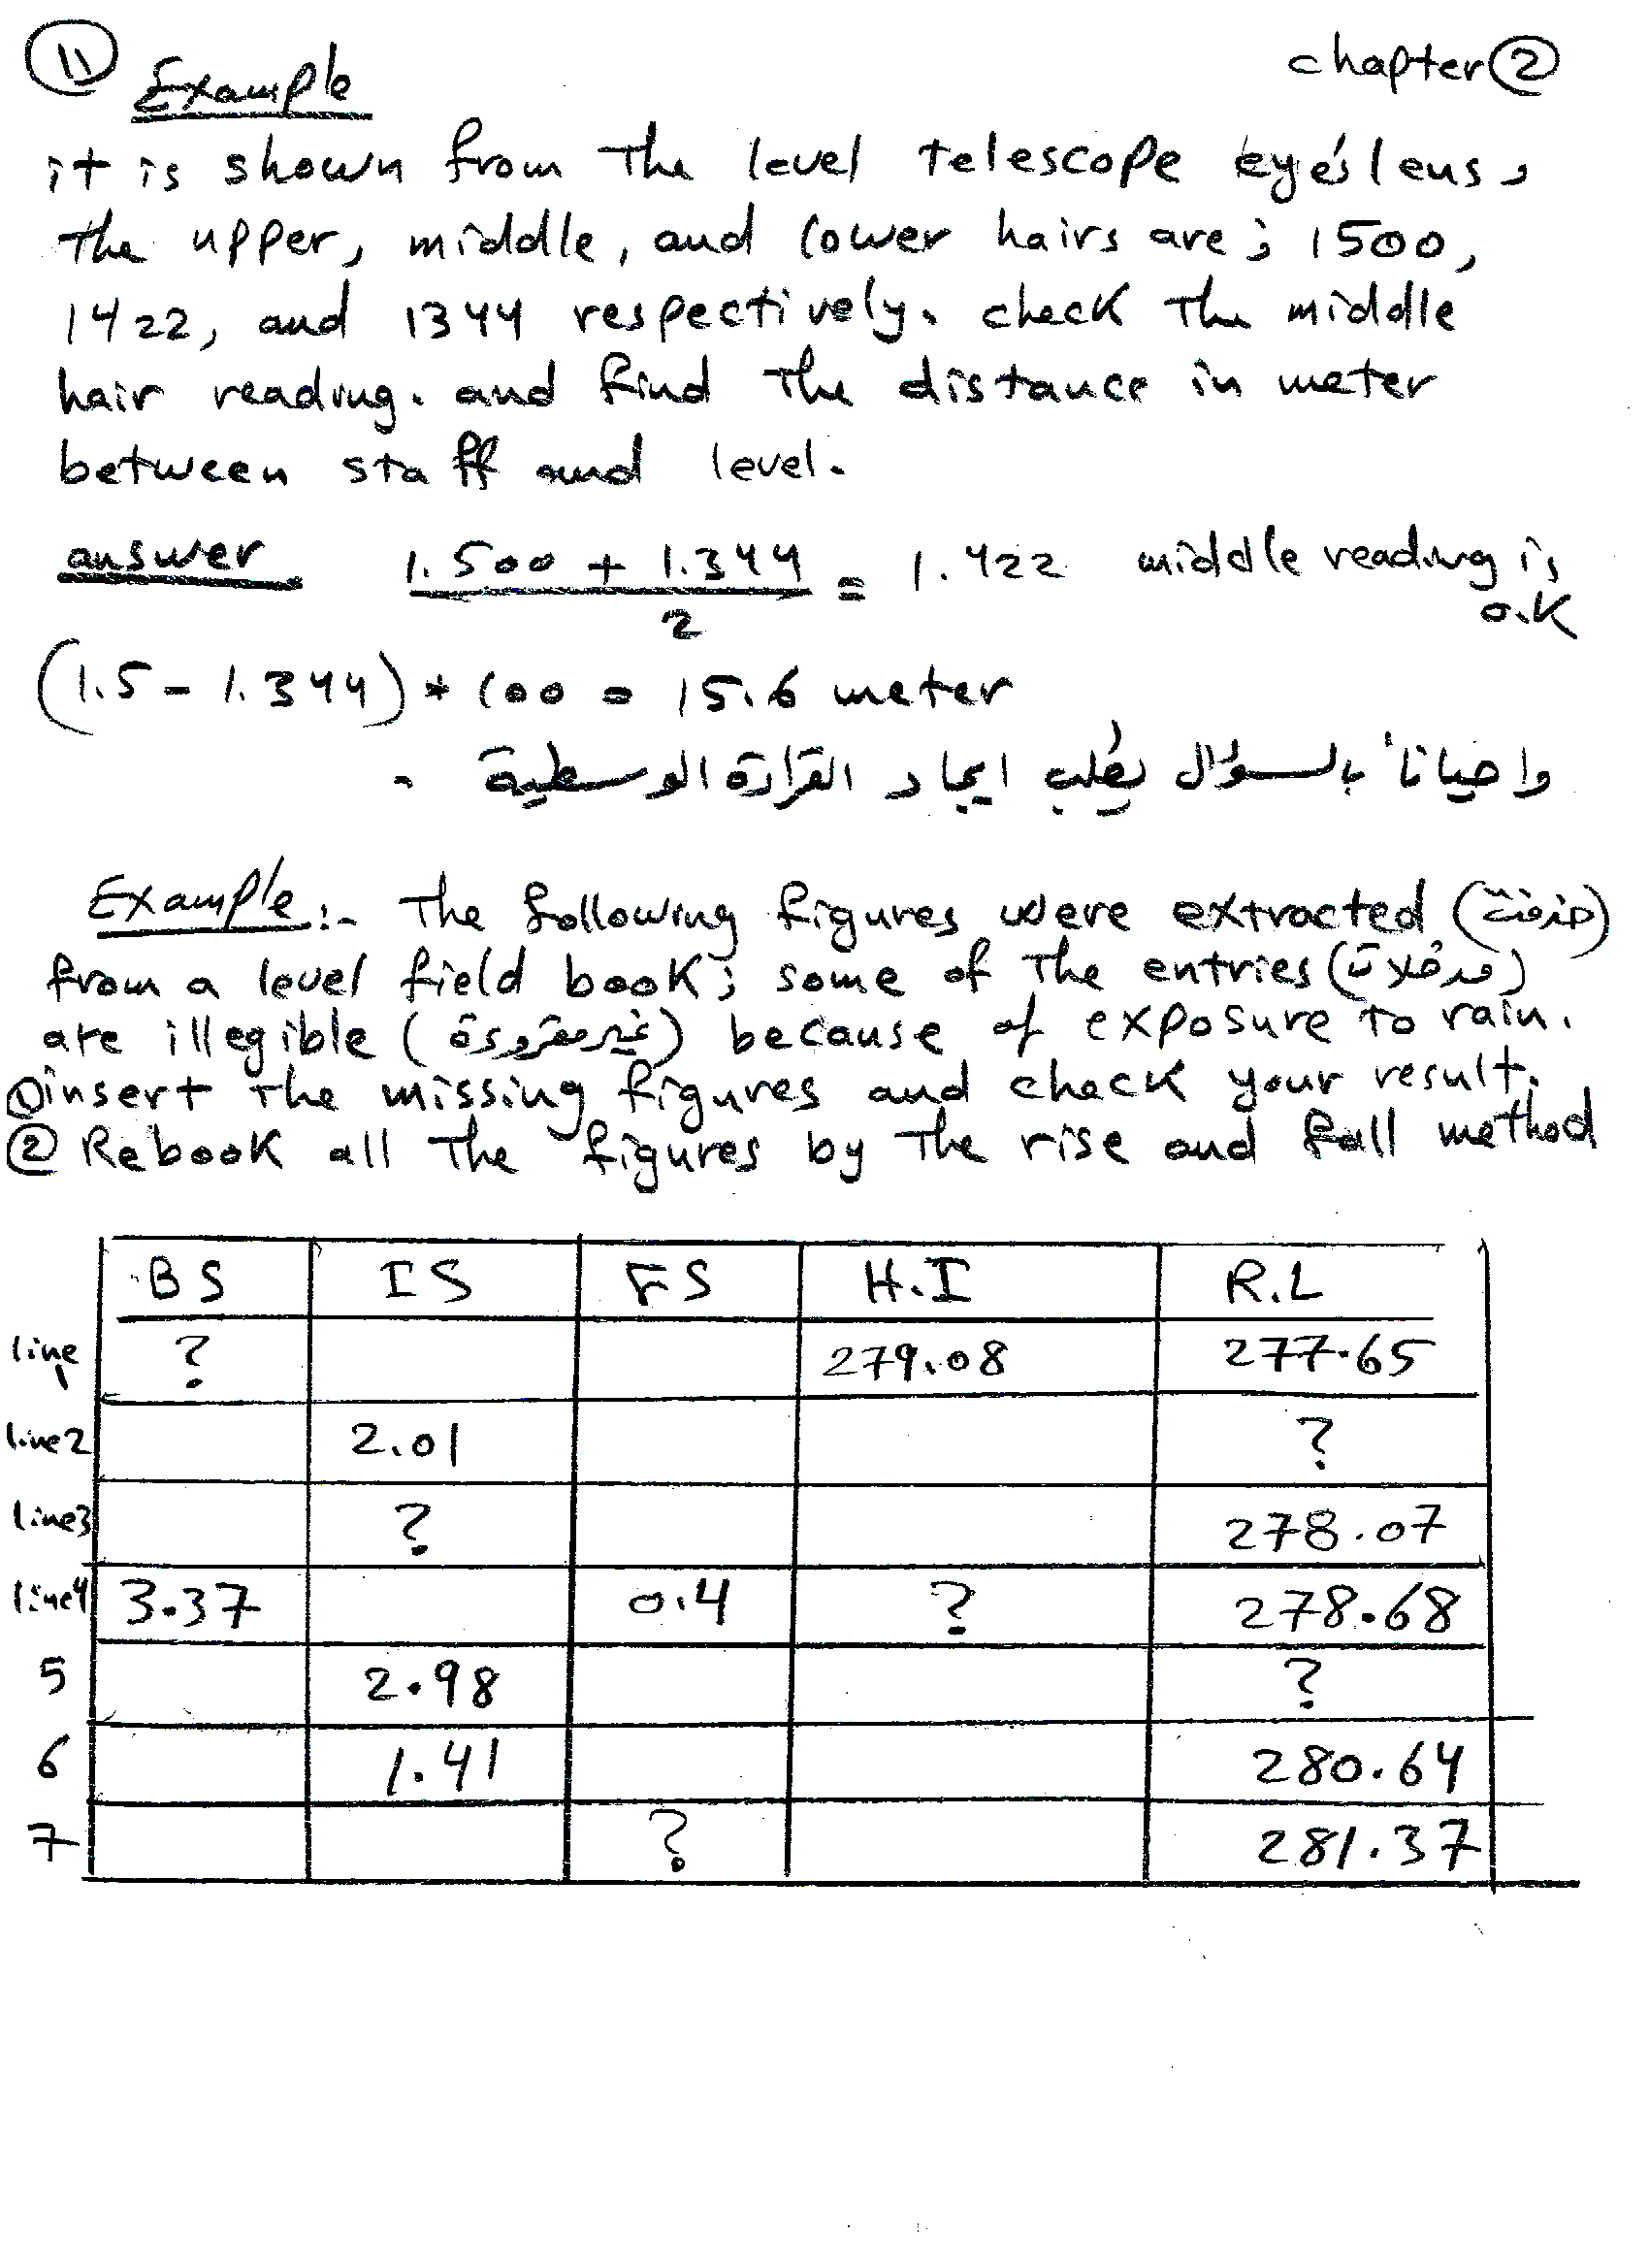 11
chapter 2
Example
it is shown from the level telescope eye's lens,
the upper, middle, and lower hairs are; 1500,
1422, and 1344 respectively. check the middle
hair reading. and find the distance in meter
between staff and level.
answer 1.500 + 1.344 / 2 = 1.422 middle reading is o.k
(1.5 - 1.344) * 100 = 15.6 meter
واحياناً بالسؤال يُطلب ايجاد القراءة الوسطية .
Example:- The following figures were extracted
from a level field book; some of the entries
are illegible (غير مقروءة) because of exposure to rain.
① insert the missing figures and check your result.
② Rebook all the figures by the rise and fall method
BS IS FS H.I R.L
line 1 ? 279.08 277.65
line 2 2.01 ?
line 3 ? 278.07
line 4 3.37 0.4 ? 278.68
5 2.98 ?
6 1.41 280.64
7 ? 281.37